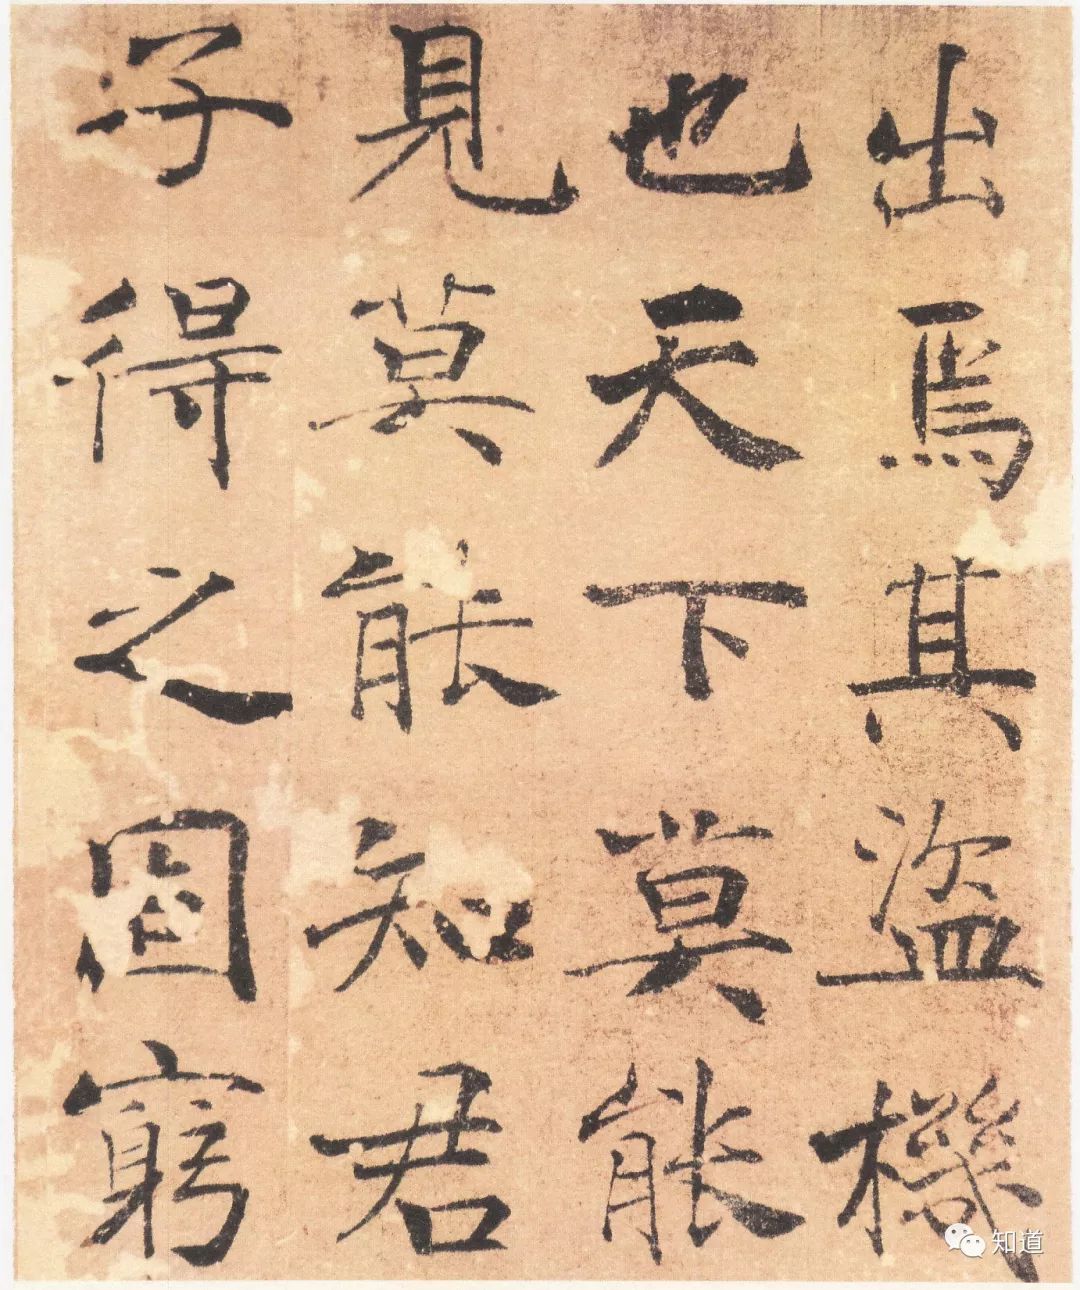 出焉其盜機
也天下莫能
見莫能知君
子得之固窮
知道